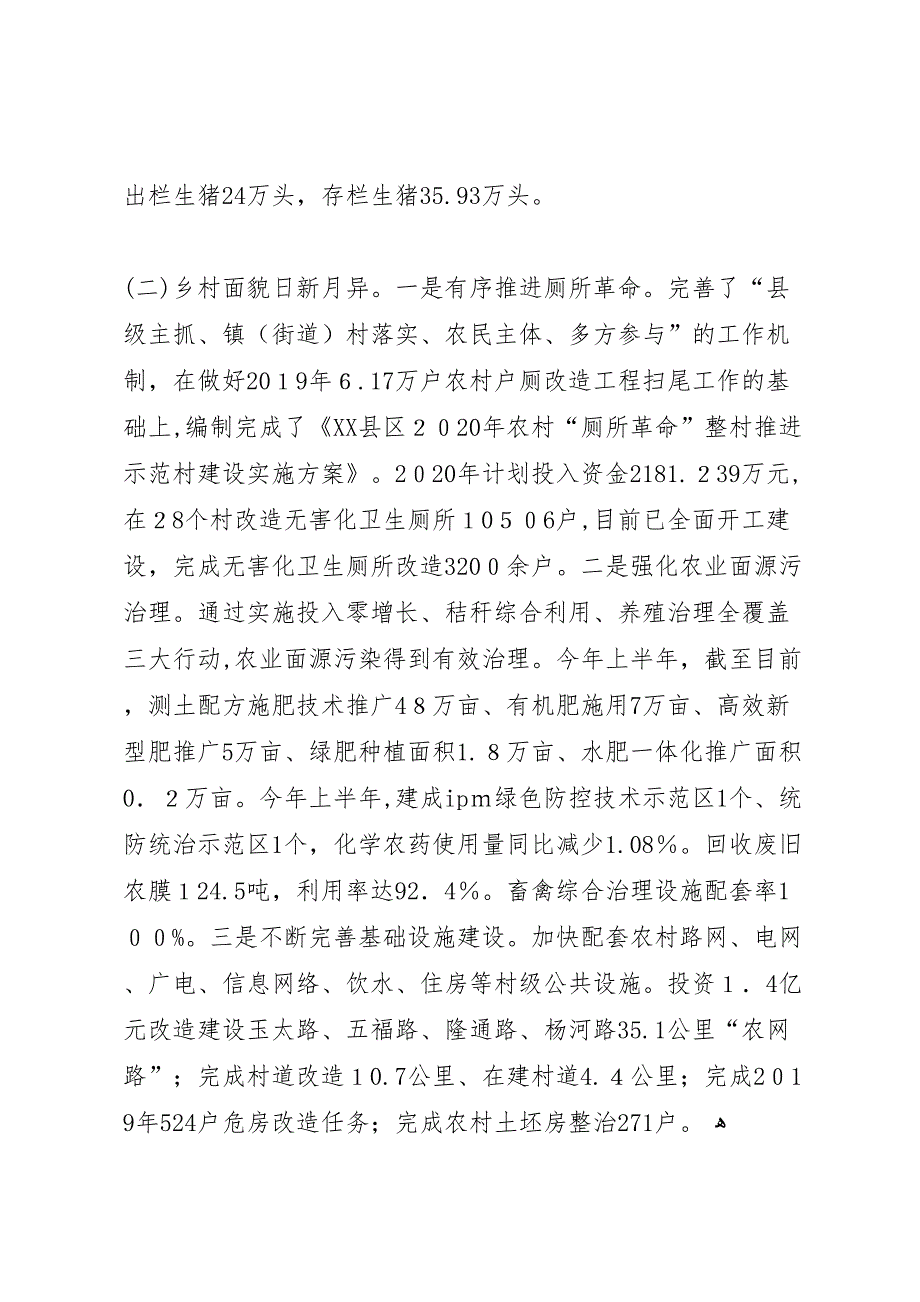 出栏生猪24万头，存栏生猪35.93万头。
(二)乡村面貌日新月异。一是有序推进厕所革命。完善了“县
级主抓、镇（街道）村落实、农民主体、多方参与”的工作机
制，在做好2019年6.17万户农村户厕改造工程扫尾工作的基
础上,编制完成了《XX县区2020年农村“厕所革命”整村推进
示范村建设实施方案》。2020年计划投入资金2181.239万元,
在28个村改造无害化卫生厕所10506户,目前已全面开工建
设，完成无害化卫生厕所改造3200余户。二是强化农业面源污
治理。通过实施投入零增长、秸秆综合利用、养殖治理全覆盖
三大行动,农业面源污染得到有效治理。今年上半年，截至目前
，测土配方施肥技术推广48万亩、有机肥施用7万亩、高效新
型肥推广5万亩、绿肥种植面积1.8万亩、水肥一体化推广面积
0.2万亩。今年上半年,建成ipm绿色防控技术示范区1个、统
防统治示范区1个，化学农药使用量同比减少1.08%。回收废旧
农膜124.5吨，利用率达92.4%。畜禽综合治理设施配套率1
00%。三是不断完善基础设施建设。加快配套农村路网、电网
、广电、信息网络、饮水、住房等村级公共设施。投资1.4亿
元改造建设玉太路、五福路、隆通路、杨河路35.1公里“农网
路”；完成村道改造10.7公里、在建村道4.4公里；完成201
9年524户危房改造任务；完成农村土坯房整治271户。ﻫ